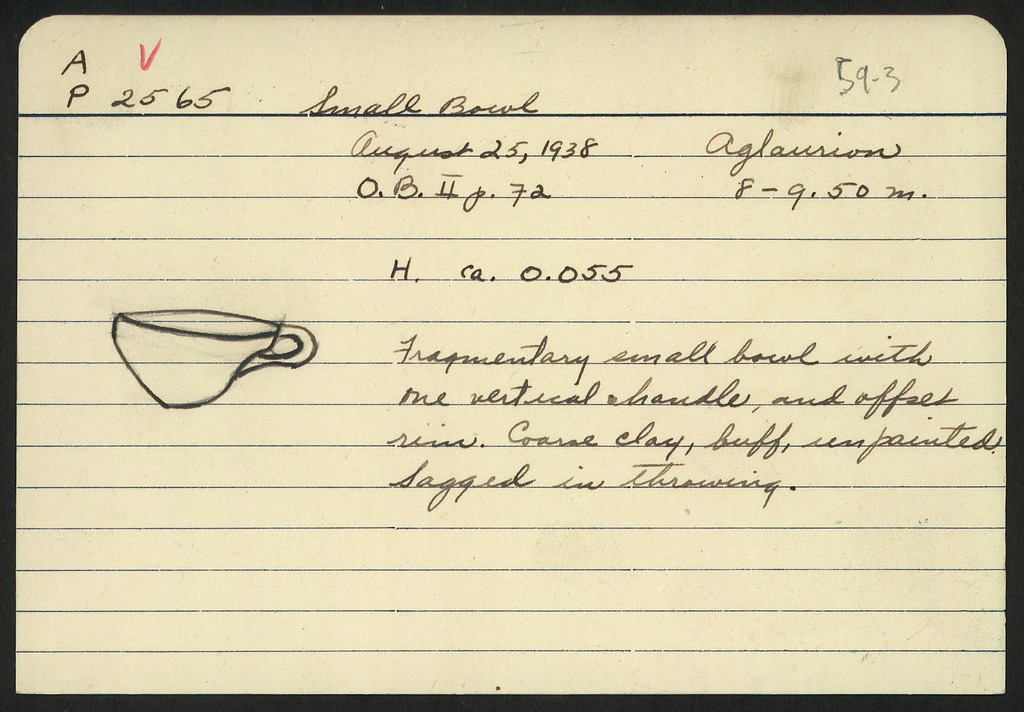 A V
59-3
P 2565 Small Bowl
August 25, 1938 Aglaurion
O.B. II p. 72 8-9.50 m.
H. ca. 0.055
Fragmentary small bowl with
one vertical handle, and offset
rim. Coarse clay, buff, unpainted.
Sagged in throwing.